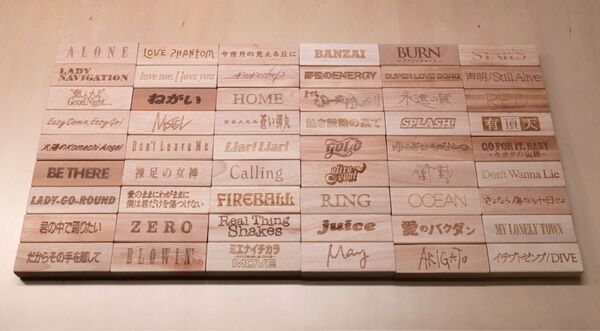 ALONE
LOVE PHANTOM
今夜月の見える丘に
BANZAI
BURN
-フメツノフェイス-
STARS
LADY NAVIGATION
love me, I love you
野性のENERGY
SUPER LOVE SONG
声明/Still Alive
Good Night...
ねがい
HOME
永遠の翼
RED
Easy Come, Easy Go!
MOTEL
蒼い弾丸
熱き鼓動の果て
SPLASH!
有頂天
太陽のKomachi Angel
Don't Leave Me
Liar! Liar!
GOLD
ゆるぎないものひとつ
GO FOR IT, BABY
-キオクの山脈-
BE THERE
裸足の女神
Calling
ultra soul
衝動
Don't Wanna Lie
LADY-GO-ROUND
愛のままにわがままに
僕は君だけを傷つけない
FIREBALL
RING
OCEAN
さよなら傷だらけの日々よ
君の中で踊りたい
ZERO
Real Thing Shakes
juice
愛のバクダン
MY LONELY TOWN
だからその手を離して
BLOWIN'
ミエナイチカラ
MOVE
May
ARIGATO
イチブトゼンブ/DIVE